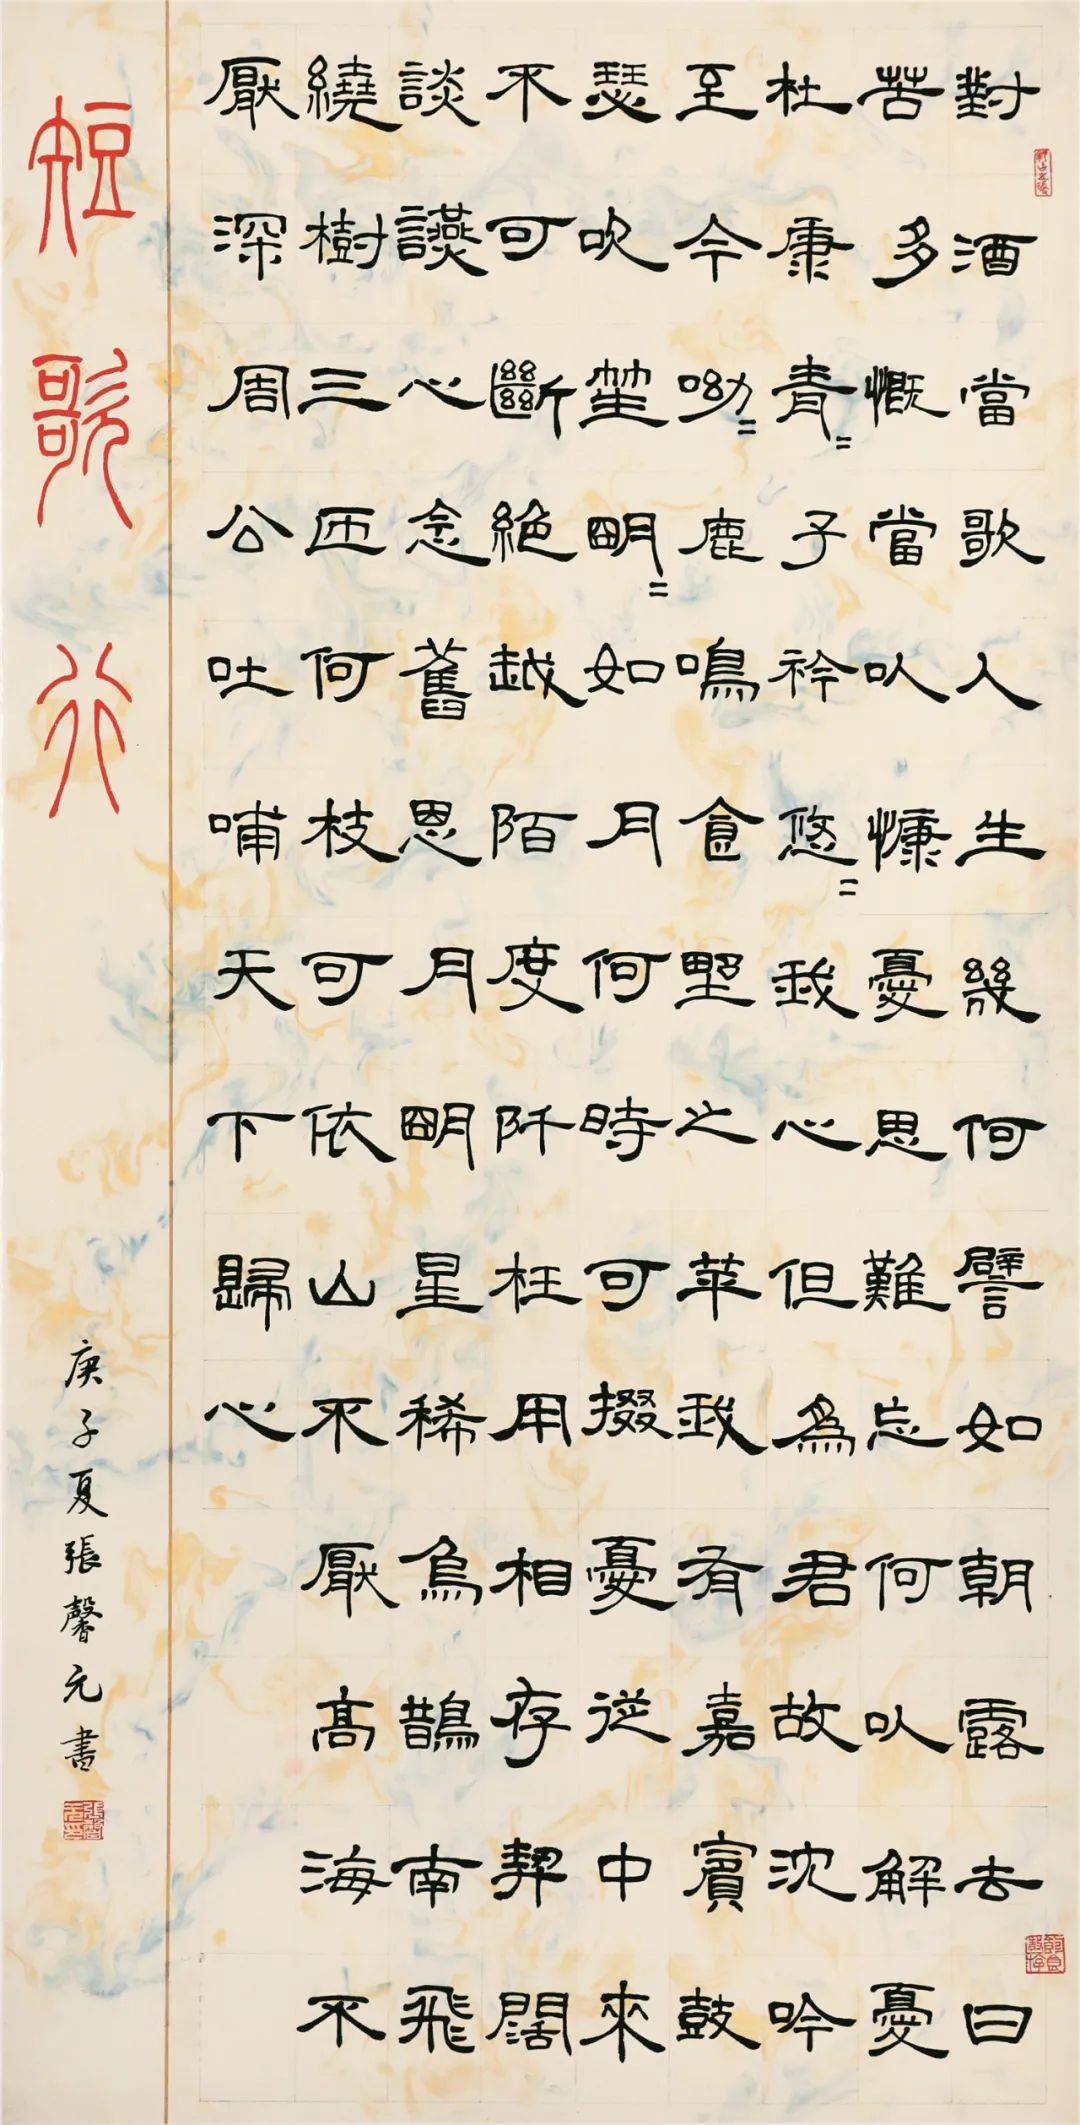 對酒當歌人生幾何譬如朝露去日
苦多慨當以慷憂思難忘何以解憂
杜康青〻子衿悠〻我心但為君故沈吟
至今呦〻鹿鳴食野之苹我有嘉賓鼓
瑟吹笙朙〻如月何時可掇憂從中來
不可斷絕越陌度阡枉用相存契闊
談讌心念舊恩月朙星稀烏鵲南飛
繞樹三匝何枝可依山不厭高海不
厭深周公吐哺天下歸心
短歌行
庚子夏張馨元書